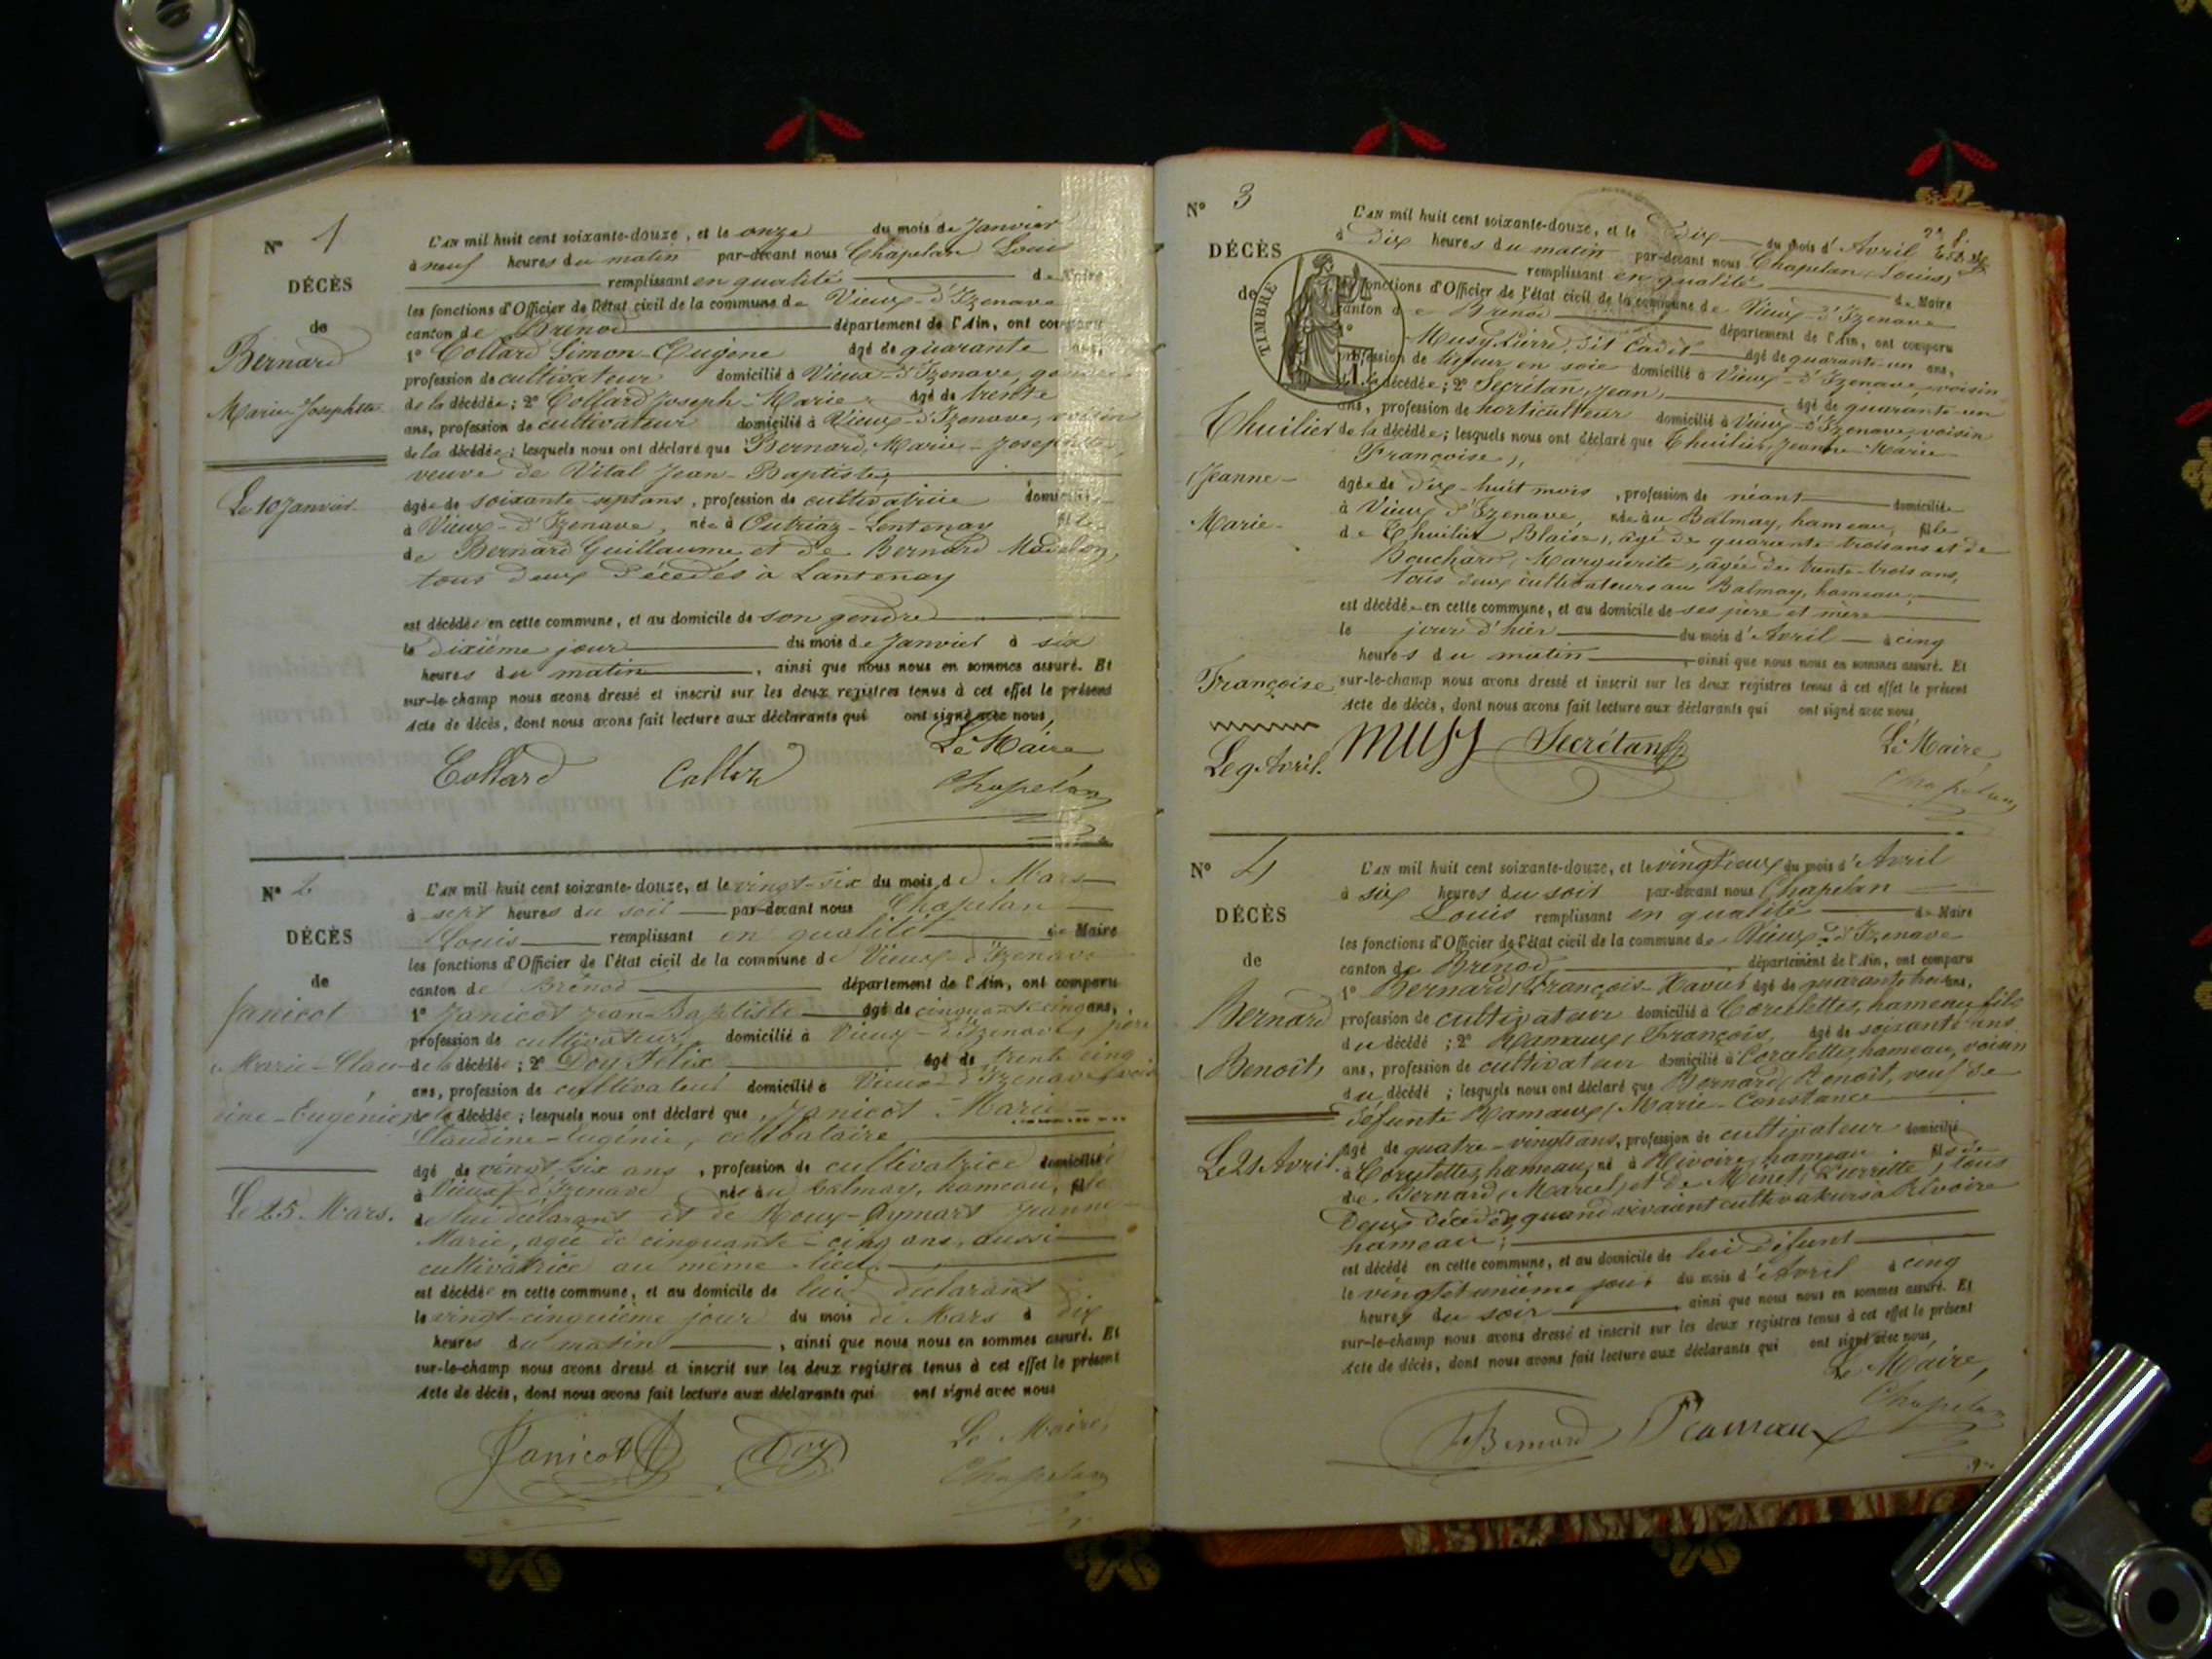 N° 1
DÉCÈS
de
Bernard
Marie-Josephte
Le 10 Janvier.
L'AN mil huit cent soixante-douze, et le onze du mois de Janvier
à neuf heures du matin par-devant nous Chapelan Louis
remplissant en qualité de Maire
les fonctions d'Officier de l'état civil de la commune de Vieux-d'Izenave
canton de Brénod département de l'Ain, ont comparu
1° Collard Simon-Eugène âgé de quarante ans,
profession de cultivateur domicilié à Vieux-d'Izenave, gendre
de la décédée; 2° Collard Joseph-Marie âgé de trente
ans, profession de cultivateur domicilié à Vieux-d'Izenave, voisin
de la décédée; lesquels nous ont déclaré que Bernard, Marie-Josephte,
veuve de Vital Jean-Baptiste,
âgée de soixante-sept ans, profession de cultivatrice domiciliée
à Vieux-d'Izenave, née à Outriaz-Lentenay fille
de Bernard Guillaume et de Bernard Madelon,
tous deux décédés à Lantenay
est décédée en cette commune, et au domicile de son gendre
le dixième jour du mois de Janvier à six
heures du matin, ainsi que nous nous en sommes assuré. Et
sur-le-champ nous avons dressé et inscrit sur les deux registres tenus à cet effet le présent
Acte de décès, dont nous avons fait lecture aux déclarants qui ont signé avec nous,
Le Maire
Collard Collard Chapelan
N° 2
DÉCÈS
de
Janicot
Marie-Clau-
dine-Eugénie
Le 25 Mars.
L'AN mil huit cent soixante-douze, et le vingt-six du mois de Mars
à sept heures du soir par-devant nous Chapelan
Louis remplissant en qualité de Maire
les fonctions d'Officier de l'état civil de la commune de Vieux-d'Izenave
canton de Brénod département de l'Ain, ont comparu
1° Janicot Jean-Baptiste âgé de cinquante-cinq ans,
profession de cultivateur domicilié à Vieux-d'Izenave, père
de la décédée; 2° Doy Félix âgé de trente cinq
ans, profession de cultivateur domicilié à Vieux-d'Izenave voisin
de la décédée; lesquels nous ont déclaré que Janicot Marie-
Claudine-Eugénie, célibataire
âgé de vingt-six ans, profession de cultivatrice domiciliée
à Vieux-d'Izenave née au Balmay, hameau, fille
de lui déclarant et de Roux-Aymars Jeanne-
Marie, agée de cinquante-cinq ans, aussi
cultivatrice au même lieu.
est décédée en cette commune, et au domicile de lui déclarant
le vingt-cinquième jour du mois de Mars à dix
heures du matin, ainsi que nous nous en sommes assuré. Et
sur-le-champ nous avons dressé et inscrit sur les deux registres tenus à cet effet le présent
Acte de décès, dont nous avons fait lecture aux déclarants qui ont signé avec nous
Le Maire,
Janicot Doy Chapelan
N° 3
DÉCÈS
de
TIMBRE
Thuilier
Jeanne-
Marie-
Françoise
Le 9 Avril.
L'AN mil huit cent soixante-douze, et le dix du mois d'Avril
à dix heures du matin par-devant nous Chapelan Louis,
remplissant en qualité de Maire
les fonctions d'Officier de l'état civil de la commune de Vieux-d'Izenave
canton de Brénod département de l'Ain, ont comparu
1° Musy Pierre, dit Cadet âgé de quarante-un ans,
profession de tisseur en soie domicilié à Vieux-d'Izenave, voisin
de la décédée; 2° Secrétan, Jean, âgé de quarante-un
ans, profession de horticulteur domicilié à Vieux-d'Izenave, voisin
de la décédée; lesquels nous ont déclaré que Thuilier, Jeanne-Marie-
Françoise,
âgée de dix-huit mois, profession de néant domiciliée
à Vieux d'Izenave, née au Balmay, hameau, fille
de Thuilier, Blaise, âgé de quarante-trois ans et de
Bouchard, Marguerite, âgée de trente-trois ans,
tous deux cultivateurs au Balmay, hameau,
est décédée en cette commune, et au domicile de ses père et mère
le jour d'hier du mois d'Avril à cinq
heures du matin, ainsi que nous nous en sommes assuré. Et
sur-le-champ nous avons dressé et inscrit sur les deux registres tenus à cet effet le présent
Acte de décès, dont nous avons fait lecture aux déclarants qui ont signé avec nous
MUSY Secrétan Le Maire,
Chapelan
N° 4
DÉCÈS
de
Bernard
Benoît
Le 21 Avril.
L'AN mil huit cent soixante-douze, et le vingt-deux du mois d'Avril
à six heures du soir par-devant nous Chapelan
Louis remplissant en qualité de Maire
les fonctions d'Officier de l'état civil de la commune de Vieux-d'Izenave
canton de Brénod, département de l'Ain, ont comparu
1° Bernard, François-Xavier âgé de quarante-trois ans,
profession de cultivateur domicilié à Corcelettes, hameau, fils
du décédé; 2° Ramaux, François, âgé de soixante ans
ans, profession de cultivateur domicilié à Corcelettes, hameau, voisin
du décédé; lesquels nous ont déclaré que Bernard, Benoît, veuf de
défunte Ramaux, Marie-Constance
âgé de quatre-vingts ans, profession de cultivateur domicilié
à Corcelettes, hameau, né à Rivoire, hameau fils de
de Bernard, Marcel, et de Minet, Pierrette, tous
deux décédés, quand vivaient cultivateurs à Rivoire
hameau;
est décédé en cette commune, et au domicile de lui défunt
le vingt et unième jour du mois d'Avril à cinq
heures du soir, ainsi que nous nous en sommes assuré. Et
sur-le-champ nous avons dressé et inscrit sur les deux registres tenus à cet effet le présent
Acte de décès, dont nous avons fait lecture aux déclarants qui ont signé avec nous,
Le Maire,
Bernard Ramaux Chapelan